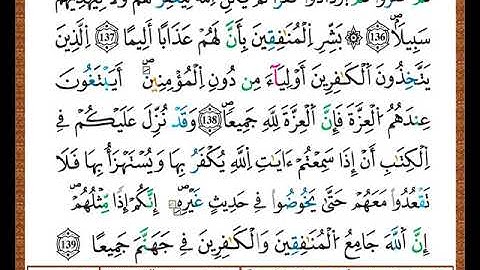 سَبِيلَاۢ ١٣٦ ۞ بَشِّرِ اِلْمُنَٰفِقِينَ بِأَنَّ لَهُمْ عَذَابًا أَلِيمًا ١٣٧ اِلذِينَ
يَتَّخِذُونَ اَلْكَٰفِرِينَ أَوْلِيَآءَ مِن دُونِ اِلْمُؤْمِنِينَۖ أَيَبْتَغُونَ
عِندَهُمُ اُلْعِزَّةَ فَإِنَّ اَلْعِزَّةَ لِلهِ جَمِيعاۖ ١٣٨ وَقَدْ نُزِّلَ عَلَيْكُمْ فِے
اِلْكِتَٰبِ أَنِ اِذَا سَمِعْتُمُۥٓ ءَايَٰتِ اِللَّهِ يُكْفَرُ بِهَا وَيُسْتَهْزَأُ بِهَا فَلَا
تَقْعُدُوا مَعَهُمْ حَتَّىٰ يَخُوضُوا فِے حَدِيثٍ غَيْرِهِۦٓۖ إِنَّكُمُۥٓ إِذًا مِّثْلُهُمُۥٓۖ
إِنَّ اَللَّهَ جَامِعُ اُلْمُنَٰفِقِينَ وَالْكَٰفِرِينَ فِے جَهَنَّمَ جَمِيعًا ١٣٩